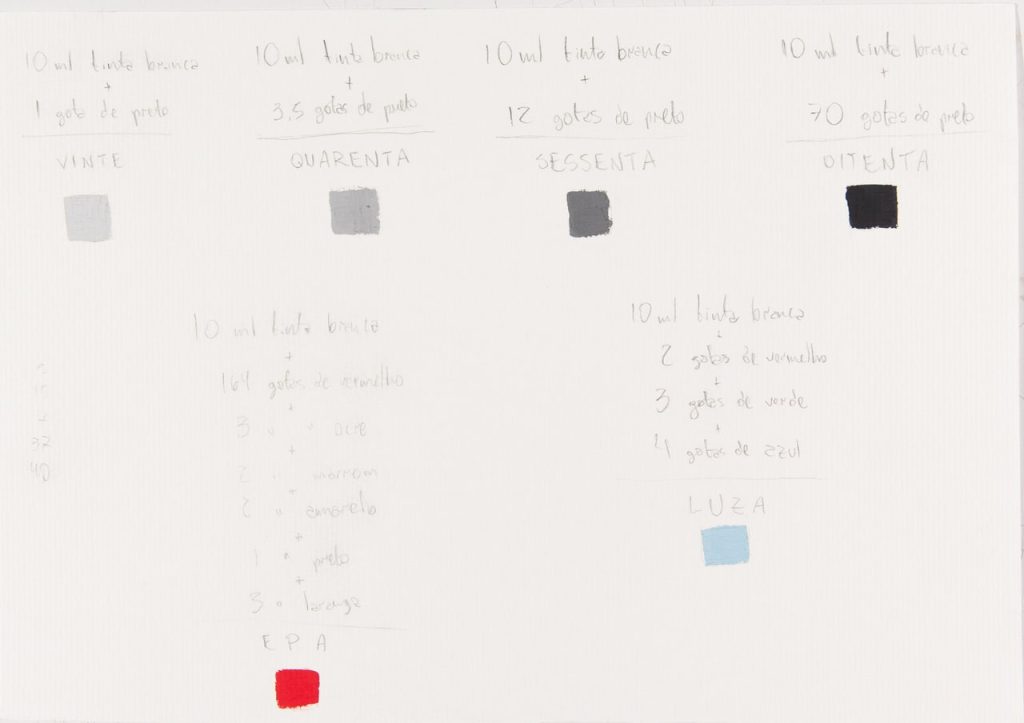 10 ml tinta branca
+
1 gota de preto
VINTE
10 ml tinta branca
+
3,5 gotas de preto
QUARENTA
10 ml tinta branca
+
12 gotas de preto
SESSENTA
10 ml tinta branca
+
70 gotas de preto
OITENTA
37
40
10 ml tinta branca
+
164 gotas de vermelho
+
3 " " ocre
+
2 " marrom
+
2 " amarelo
+
1 " preto
+
3 " laranja
EPA
10 ml tinta branca
+
2 gotas de vermelho
+
3 gotas de verde
+
4 gotas de azul
LUZA